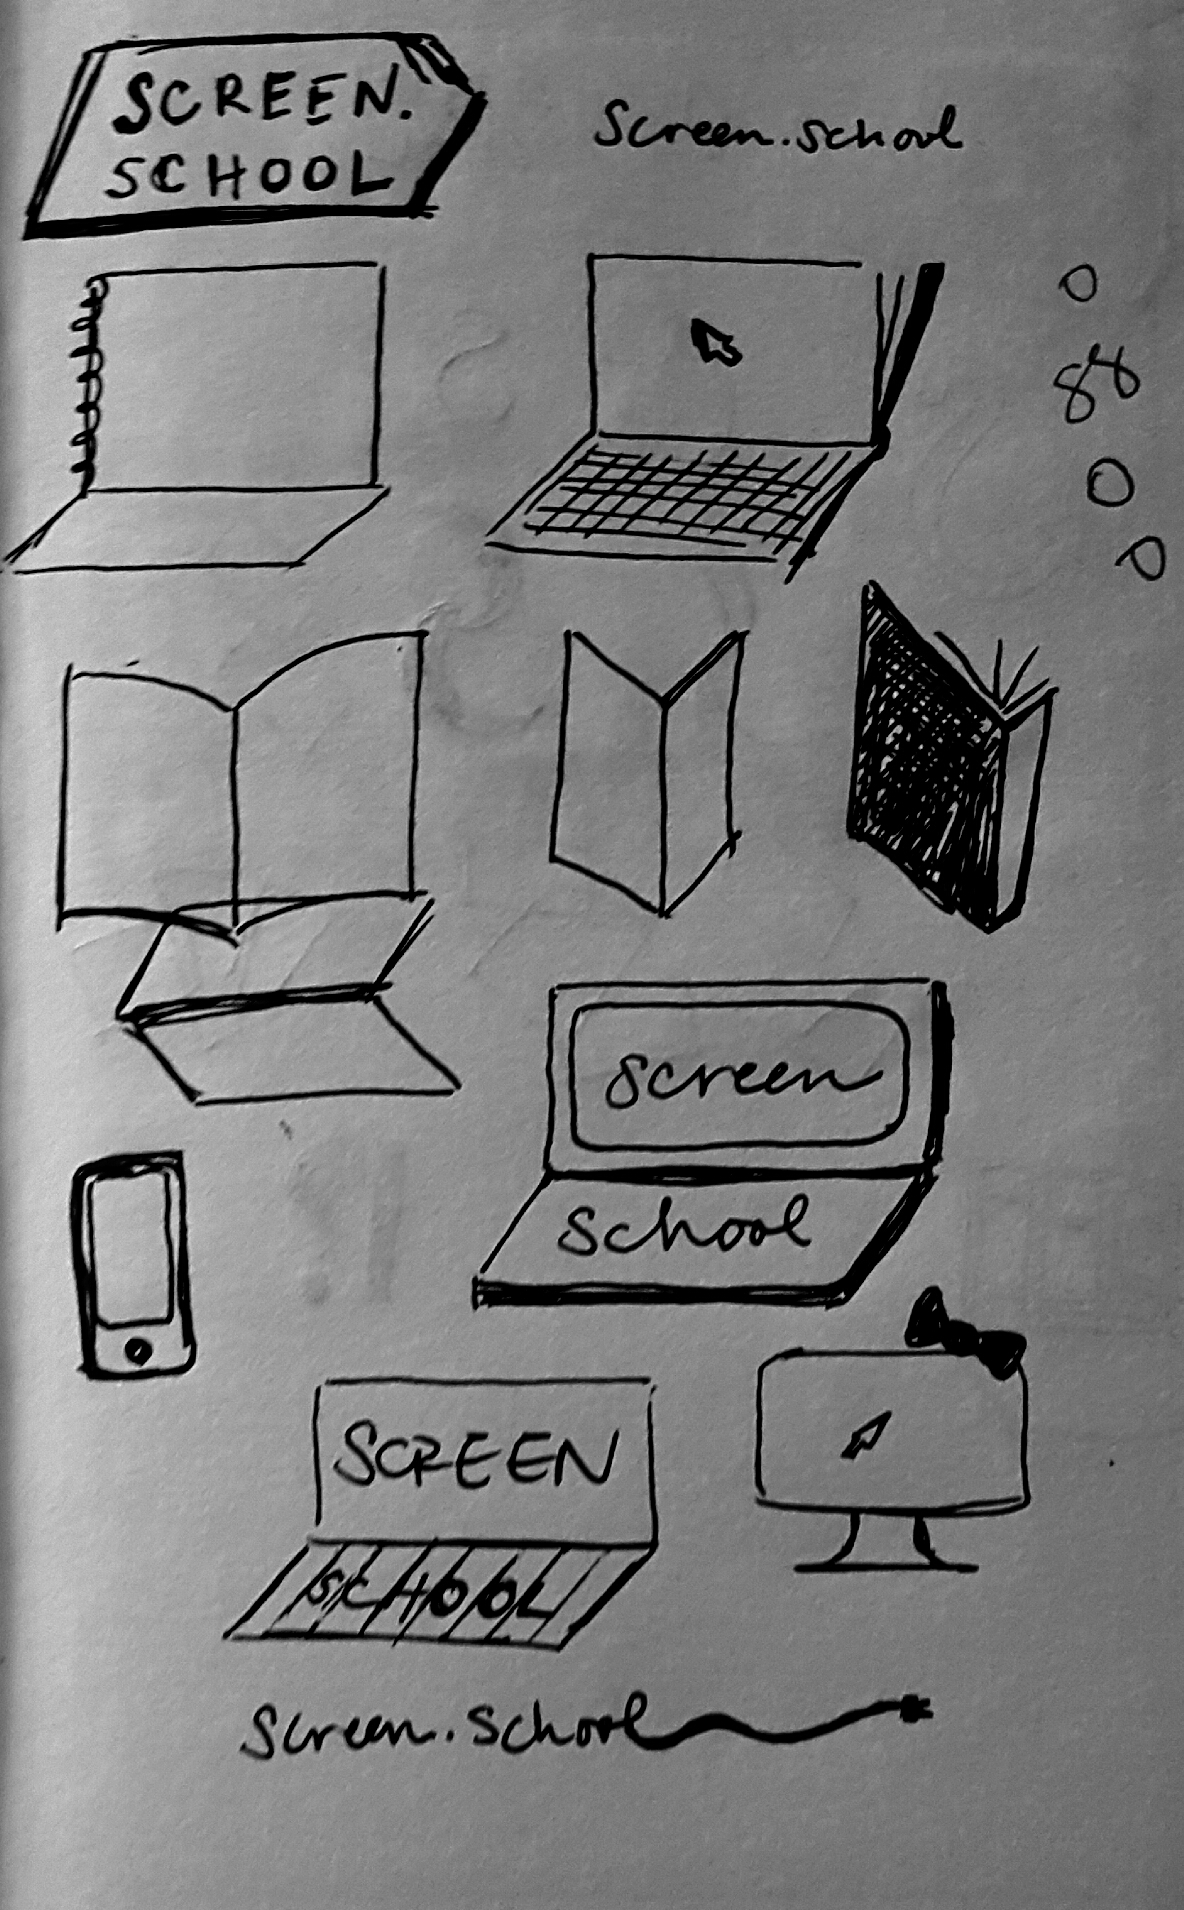 SCREEN.
SCHOOL
Screen.school
screen
school
SCREEN
SCHOOL
Screen.School